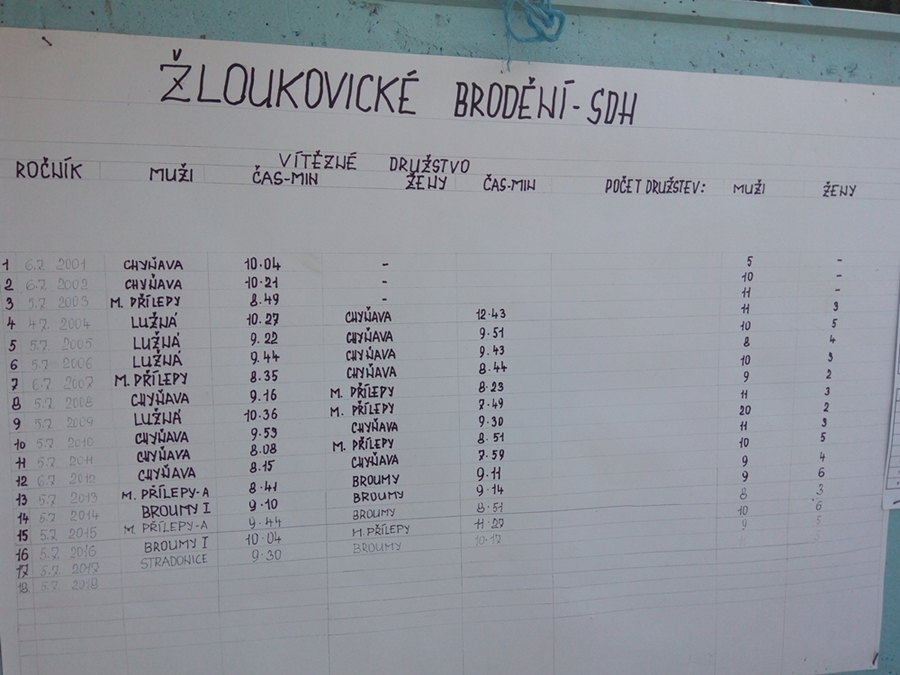 ŽLOUKOVICKÉ BRODĚNÍ - SDH
VÍTĚZNÉ DRUŽSTVO
ROČNÍK MUŽI ČAS-MIN ŽENY ČAS-MIN POČET DRUŽSTEV: MUŽI ŽENY
1 6.7. 2001 CHYŇAVA 10.04 - 5 -
2 6.7. 2002 CHYŇAVA 10.21 - 10 -
3 5.7. 2003 M. PŘÍLEPY 8.49 - 11 -
4 4.7. 2004 LUŽNÁ 10.27 CHYŇAVA 12.43 11 3
5 5.7. 2005 LUŽNÁ 9.22 CHYŇAVA 9.51 10 5
6 5.7. 2006 LUŽNÁ 9.44 CHYŇAVA 9.43 8 4
7 6.7. 2007 M. PŘÍLEPY 8.35 CHYŇAVA 8.44 10 3
8 5.7. 2008 CHYŇAVA 9.16 M. PŘÍLEPY 8.23 9 2
9 5.7. 2009 LUŽNÁ 10.36 M. PŘÍLEPY 7.49 11 3
10 5.7. 2010 CHYŇAVA 9.53 CHYŇAVA 9.30 20 2
11 5.7. 2011 CHYŇAVA 8.08 M. PŘÍLEPY 8.51 11 3
12 6.7. 2012 CHYŇAVA 8.15 CHYŇAVA 7.59 10 5
13 6.7. 2013 M. PŘÍLEPY-A 8.41 BROUMY 9.11 9 4
14 5.7. 2014 BROUMY I 9.10 BROUMY 9.14 9 6
15 5.7. 2015 M. PŘÍLEPY-A 9.44 BROUMY 8.51 8 3
16 5.7. 2016 BROUMY I 10.04 M.PŘÍLEPY 11.27 10 6
17 5.7. 2017 STRADONICE 9.30 BROUMY 10.17 9 5
18 5.7. 2018